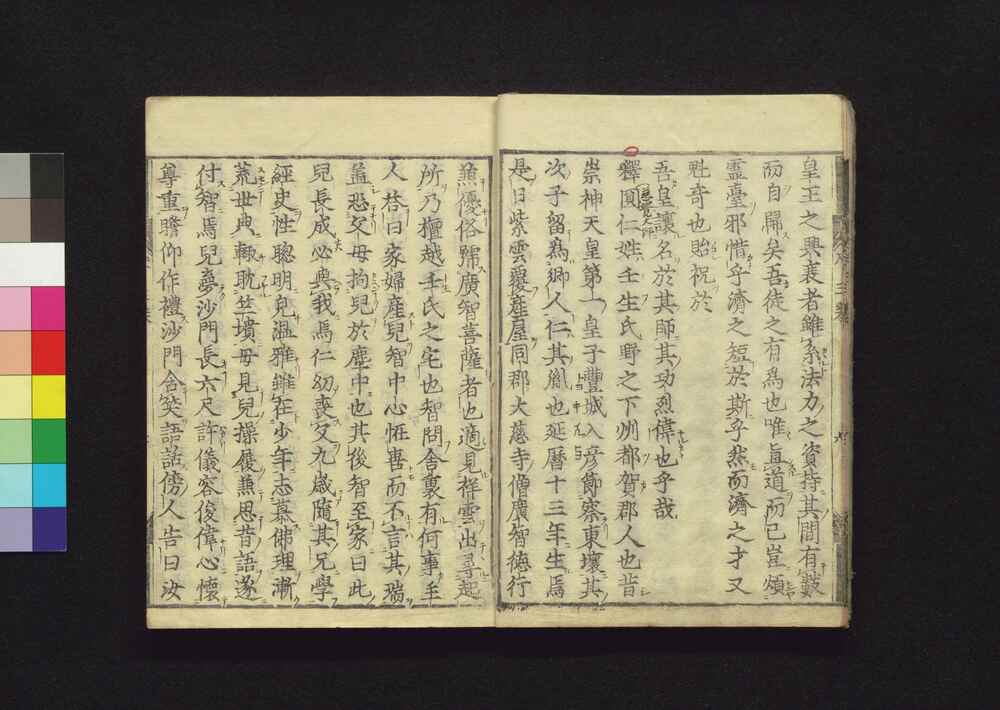 皇王之興衰者雖系法力之資持其間有數
而自開矣吾徒之有為也唯眞道而已豈頌
靈臺邪惜乎濟之短於斯乎然而濟之才又
甡奇也貽祝於
吾皇讓名於其師其功烈偉也乎哉
釋圓仁姓壬生氏野之下州都賀郡人也昔
崇神天皇第一皇子豐城入彦節察東壤其
次子留為鄉人仁其胤也延曆十三年生焉
是日紫雲覆產屋同郡大慈寺僧廣智德行
兼優俗號廣智菩薩者也適見祥雲出尋起
所乃檀越壬氏之宅也智問舍裏有何事主
人荅曰家婦產兒智中心恠喜而不言其瑞
蓋恐父母拘兒於塵中也其後智至家曰此
兒長成必與我焉仁幼喪父九歲隨其兄學
經史性聰明皃溫雅雖在少年志慕佛理漸
荒世典輙耽竺墳母見兒操履兼思昔語遂
付智焉兒夢沙門長六尺許儀容俊偉心懷
尊重瞻仰作禮沙門含笑語話傍人告曰汝